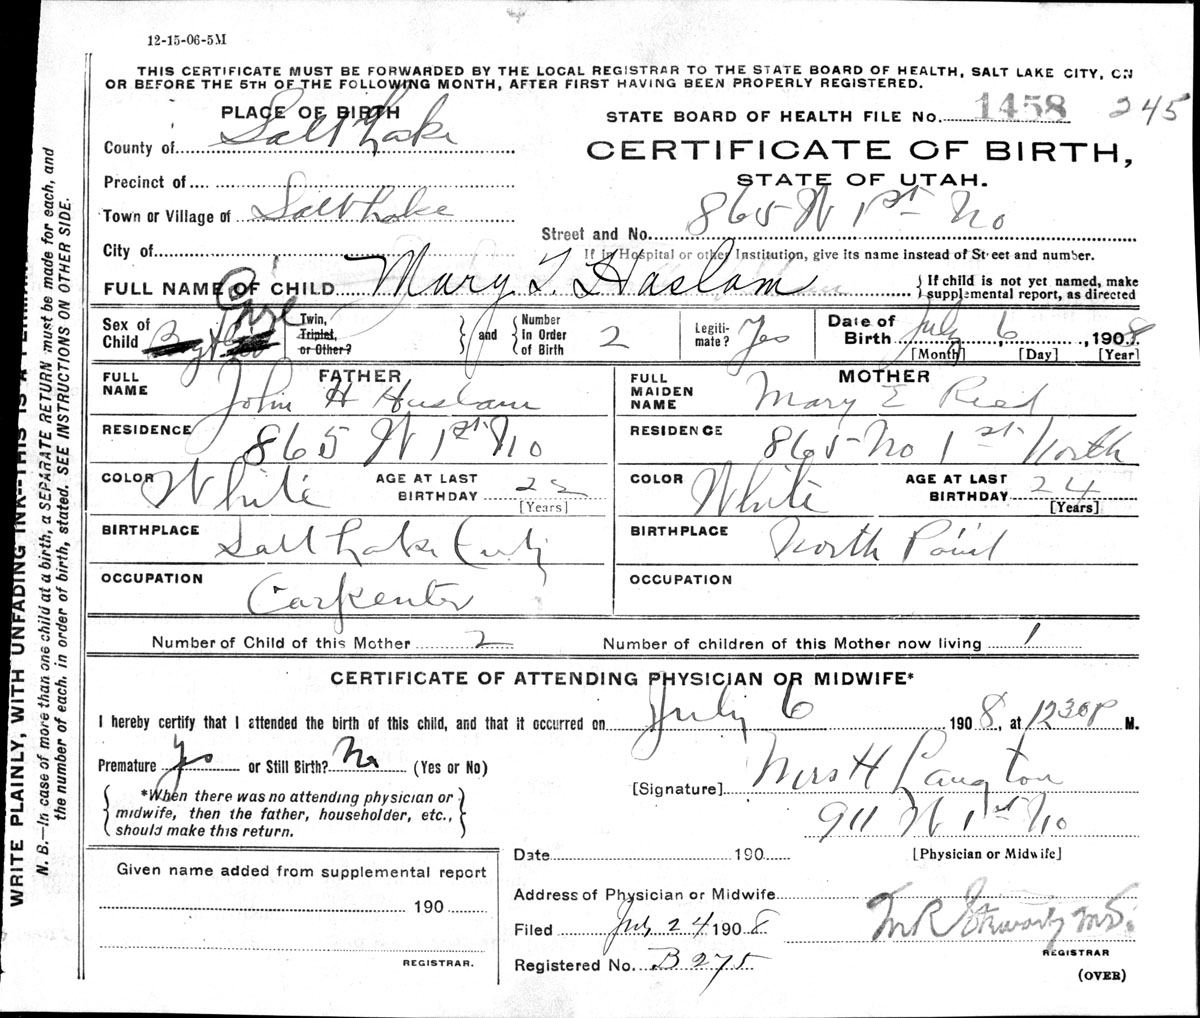 12-15-06-5M
THIS CERTIFICATE MUST BE FORWARDED BY THE LOCAL REGISTRAR TO THE STATE BOARD OF HEALTH, SALT LAKE CITY, ON
OR BEFORE THE 5TH OF THE FOLLOWING MONTH, AFTER FIRST HAVING BEEN PROPERLY REGISTERED.
PLACE OF BIRTH
STATE BOARD OF HEALTH FILE No. 1458 245
County of Salt Lake
CERTIFICATE OF BIRTH,
STATE OF UTAH.
Precinct of
Town or Village of Salt Lake
Street and No. 865 W 1st No
City of
If in Hospital or other Institution, give its name instead of Street and number.
FULL NAME OF CHILD Mary I. Haslam
If child is not yet named, make supplemental report, as directed
Sex of Child Girl
Twin, Triplet, or Other?
and
Number In Order of Birth 2
Legitimate? Yes
Date of Birth July 6, 1908.
[Month] [Day] [Year]
FATHER
FULL NAME John H Haslam
RESIDENCE 865 W 1st No
COLOR White
AGE AT LAST BIRTHDAY
[Years]
BIRTHPLACE Salt Lake City
OCCUPATION Carpenter
MOTHER
FULL MAIDEN NAME Mary E Reed
RESIDENCE 865 No 1st North
COLOR White
AGE AT LAST BIRTHDAY 24
[Years]
BIRTHPLACE North Point
OCCUPATION
Number of Child of this Mother 2
Number of children of this Mother now living 1
CERTIFICATE OF ATTENDING PHYSICIAN OR MIDWIFE*
I hereby certify that I attended the birth of this child, and that it occurred on July 6 1908, at 12 30 P M.
Premature Yes or Still Birth? No (Yes or No)
*When there was no attending physician or
midwife, then the father, householder, etc.,
should make this return.
[Signature] Mrs H Langton
911 W 1st No
[Physician or Midwife]
Date 190
Given name added from supplemental report
190
REGISTRAR.
Address of Physician or Midwife
Filed July 24 1908
M.D.
REGISTRAR
Registered No. B275
(OVER)
WRITE PLAINLY, WITH UNFADING INK--THIS IS A
N. B.—In case of more than one child at a birth, a SEPARATE RETURN must be made for each, and
the number of each, in order of birth, stated. SEE INSTRUCTIONS ON OTHER SIDE.